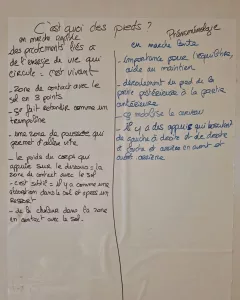 C'est quoi des pieds ?
en marche rapide
des frottements liés à
de l'énergie de vie qui
circule - c'est vivant
- zone de contact avec le
sol en 3 points
- ça fait rebondir comme un
trampoline
- une zone de poussée qui
permet d'aller vite
- le poids du corps qui
appuie sur le dessous = la
zone de contact avec le sol
- c'est subtil = il y a comme une
vibration dans le sol et après un
ressort
- de la chaleur dans la zone
en contact avec le sol.
en marche lente
- importance pour l'équilibre,
aide au maintien
- déroulement du pied de la
partie postérieure à la partie
antérieure
- ça mobilise le cerveau
- il y a des appuis qui basculent
de gauche à droite et de droite
à gauche et arrière en avant et
avant arrière